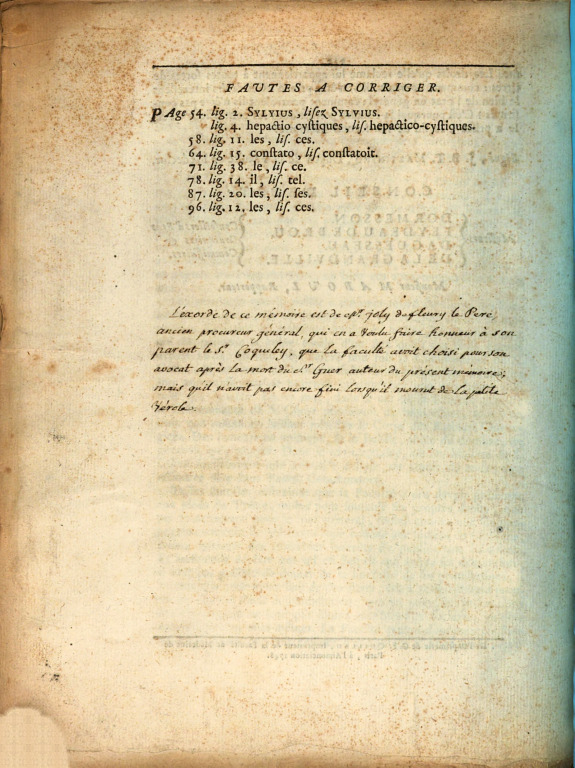 FAUTES A CORRIGER.
PAge 54. lig. 2. SYLYIUS, lisez SYLVIUS.
lig. 4. hepactio cystiques, lis. hepactico-cystiques.
58. lig. 11. les, lis. ces.
64. lig. 15. constato, lis. constatoit.
71. lig. 38. le, lis. ce.
78. lig. 14. il, lis. tel.
87. lig. 20. les, lis. ses.
96. lig. 12. les, lis. ces.
L'éxorde de ce mémoire est de Mr. joly de fleury le Pere,
ancien procureur général, qui en a voulu faire honneur à son
parent le Sr. Coqueley, que la faculté avoit choisi pour son
avocat après la mort du Mr Guer auteur du présent mémoire;
mais qu'il n'avoit pas encore fini lorsqu'il mourut de la petite
vérole.